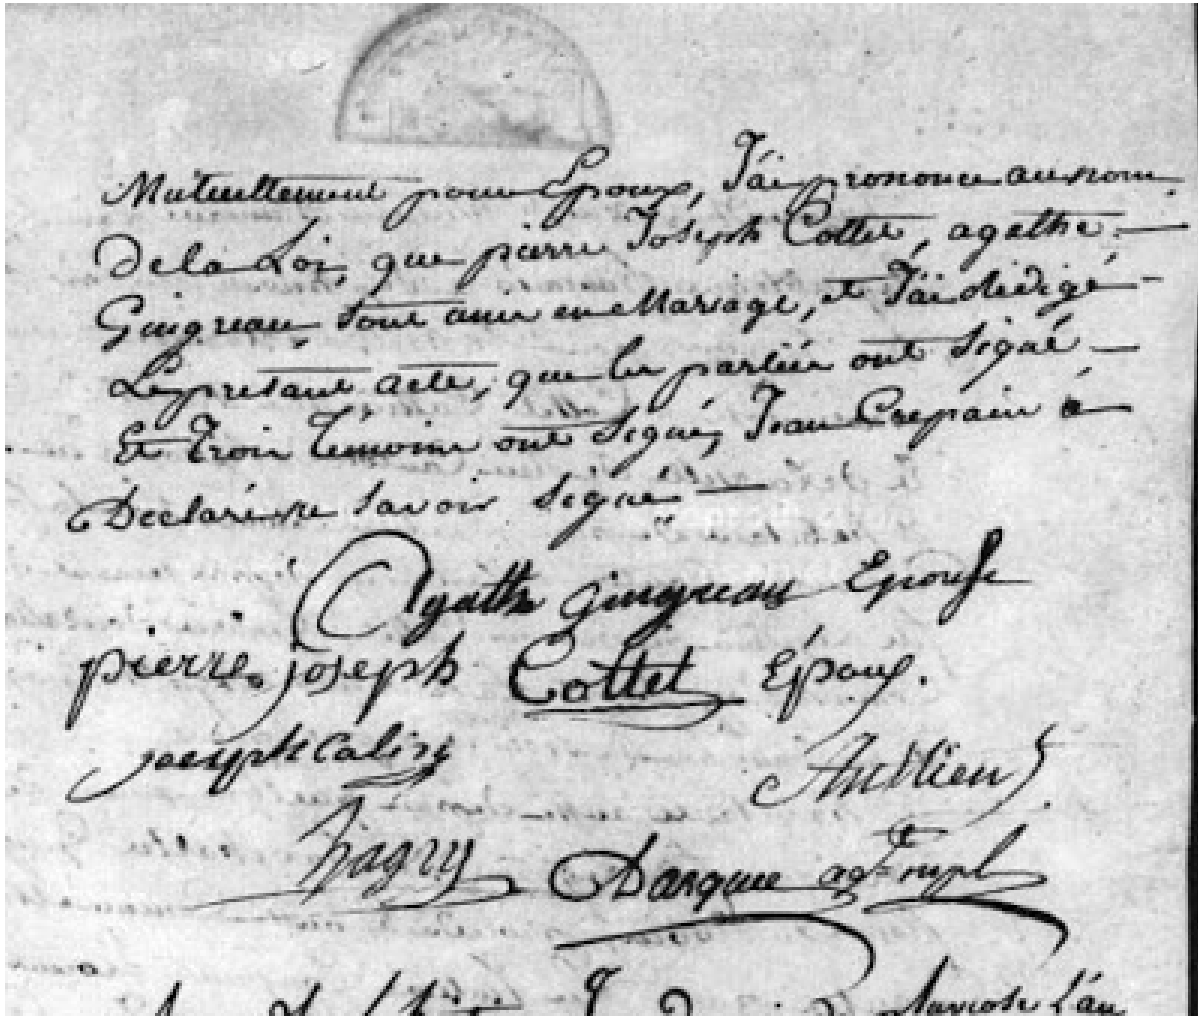 Mutuellement pour Epoux, J'ai prononce au nom
De la Loi, que pierre Joseph Cottet, agathe
Guigneau, sont unis en Mariage, et J'ai rédigé
Le present acte, que les parties ont Signé
Et trois temoins ont Signé, Jean Crepain à
Declaré ne Savoir Signé
Agathe guigneau Epouse
pierre joseph Cottet Époux.
joseph
hagry Darquie agt mpl
L'an